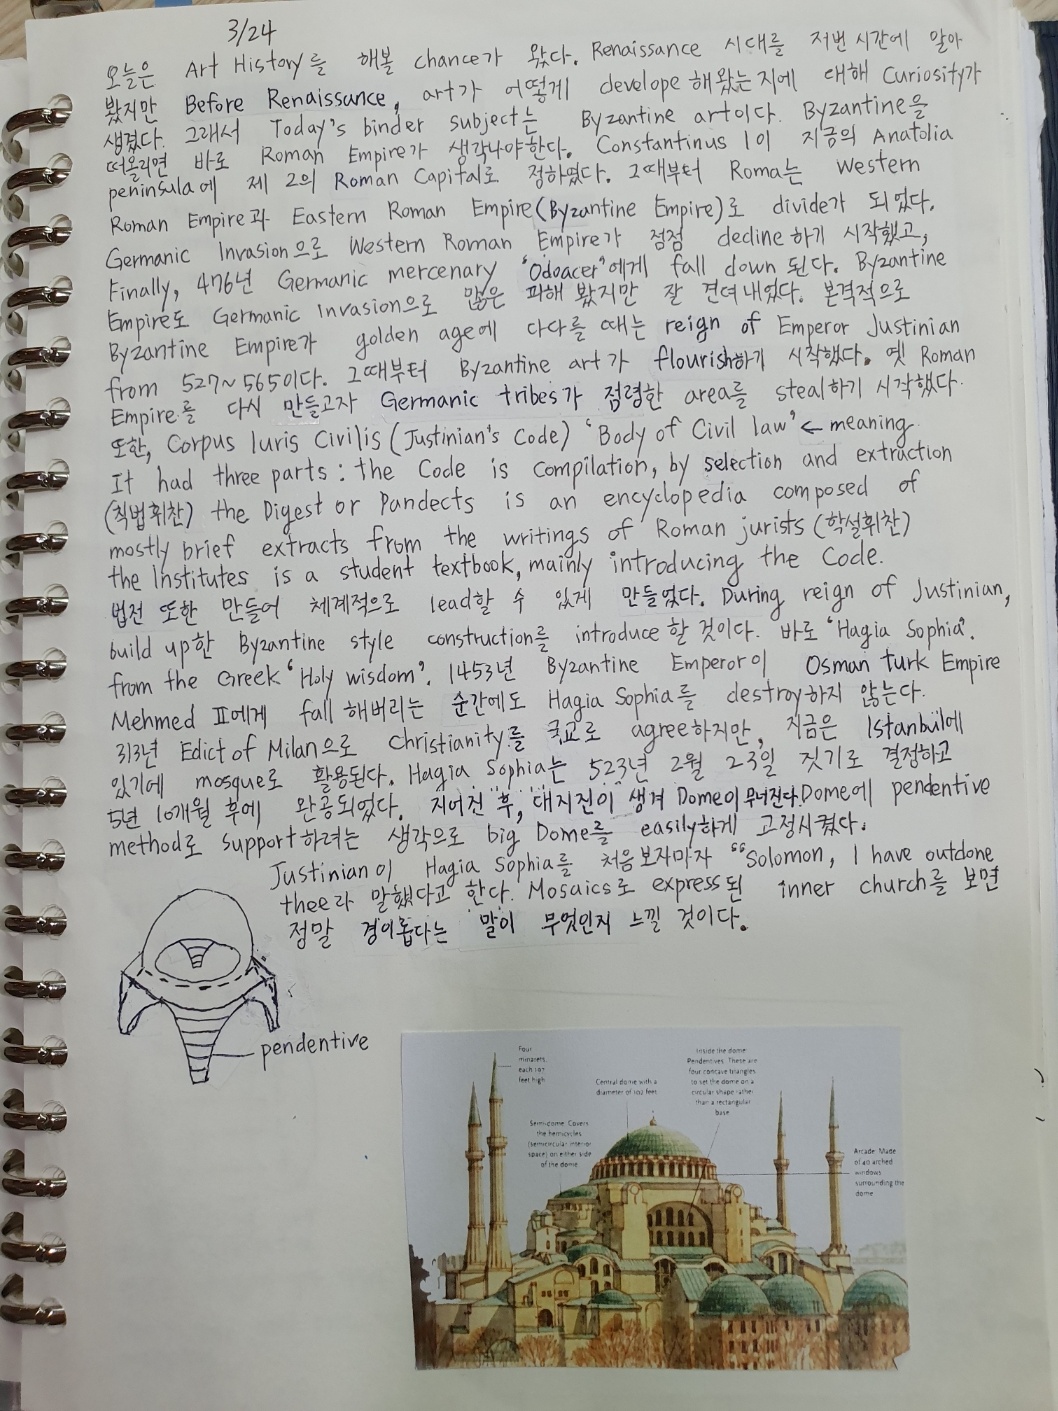 3/24
오늘은 Art History를 해볼 chance가 왔다. Renaissance 시대를 저번 시간에 알아
봤지만 Before Renaissance, art가 어떻게 develope 해왔는지에 대해 Curiosity가
생겼다. 그래서 Today's binder subject는 Byzantine art이다. Byzantine을
떠올리면 바로 Roman Empire가 생각나야한다. Constantinus 1이 지금의 Anatolia
peninsula에 제 2의 Roman Capital로 정하였다. 그때부터 Roma는 Western
Roman Empire과 Eastern Roman Empire(Byzantine Empire)로 divide가 되었다.
Germanic Invasion으로 Western Roman Empire가 점점 decline하기 시작했고,
Finally, 476년 Germanic mercenary 'Odoacer'에게 fall down 된다. Byzantine
Empire도 Germanic Invasion으로 많은 피해 봤지만 잘 견뎌내었다. 본격적으로
Byzantine Empire가 golden age에 다다를 때는 reign of Emperor Justinian
from 527~565이다. 그때부터 Byzantine art가 flourish하기 시작했다. 옛 Roman
Empire를 다시 만들고자 Germanic tribes가 점령한 area를 steal하기 시작했다.
또한, Corpus Iuris Civilis (Justinian's Code) 'Body of Civil law' ← meaning
It had three parts: the Code is compilation, by selection and extraction
(칙법휘찬) the Digest or Pandects is an encyclopedia composed of
mostly brief extracts from the writings of Roman jurists (학설휘찬)
the Institutes is a student textbook, mainly introducing the Code.
법전 또한 만들어 체계적으로 lead할 수 있게 만들었다. During reign of Justinian,
build up한 Byzantine style construction을 introduce 할 것이다. 바로 'Hagia Sophia'.
from the Greek 'Holy wisdom'. 1453년 Byzantine Emperor이 Osman turk Empire
Mehmed II에게 fall 해버리는 순간에도 Hagia Sophia를 destroy하지 않는다.
313년 Edict of Milan으로 Christianity를 국교로 agree하지만, 지금은 Istanbul에
있기에 mosque로 활용된다. Hagia Sophia는 523년 2월 23일 짓기로 결정하고
5년 10개월 후에 완공되었다. 지어진 후, 대지진이 생겨 Dome이 무너진다. Dome에 pendentive
method로 support하려는 생각으로 big Dome를 easily하게 고정시켰다.
Justinian이 Hagia Sophia를 처음보자마자 "Solomon, I have outdone
thee라 말했다고 한다. Mosaics로 express된 inner church를 보면
정말 경이롭다는 말이 무엇인지 느낄 것이다.
pendentive
Four
minarets,
each 197
feet high
Central dome with a
diameter of 102 feet
Inside the dome
Pendentives. These are
four concave triangles
to set the dome on a
circular shape rather
than a rectangular
base
Semi-dome. Covers
the hemicycles
(semicircular interior
space) on either side
of the dome
Arcade. Made
of 40 arched
windows
surrounding the
dome